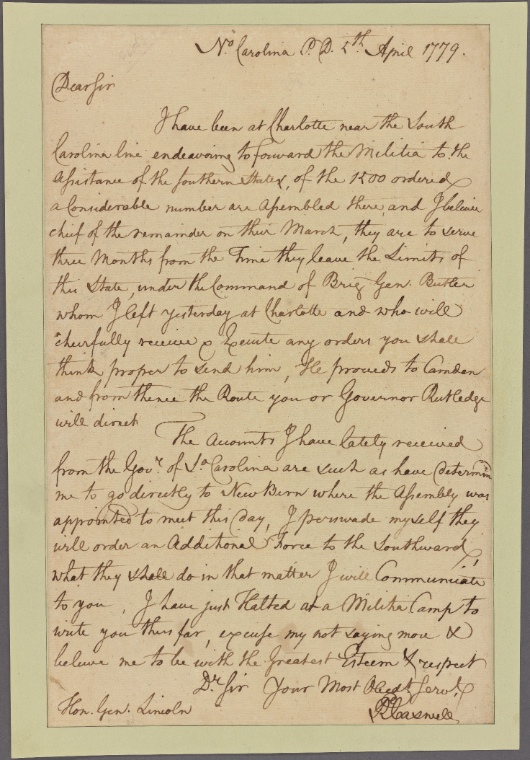 No Carolina P. D. 5th April 1779.
Dear Sir
I have been at Charlotte near the South
Carolina line endeavoring to forward the Militia to the
Assistance of the Southern States, of the 1500 ordered
a Considerable number are Assembled there, and I believe
chief of the remainder on their March, they are to serve
three Months from the Time they leave the Limits of
this State, under the Command of Brig Gen. Butler
whom I left yesterday at Charlotte and who will
cheerfully receive & Execute any orders you shall
think proper to send him, He proceeds to Camden
and from thence the Route you or Governor Rutledge
will direct
The Accounts I have lately received
from the Govr. of So Carolina are such as have determin'd
me to go directly to New Bern where the Assembly was
appointed to meet this Day, I perswade myself they
will order an Additional Force to the Southward,
what they shall do in that matter I will Communicate
to you, I have just Halted at a Militia Camp to
write you thus far, excuse my not saying more &
believe me to be with the Greatest Esteem & respect
Dr Sir Your Most Obedt. Servt.
Hon. Gen. Lincoln
R Caswell